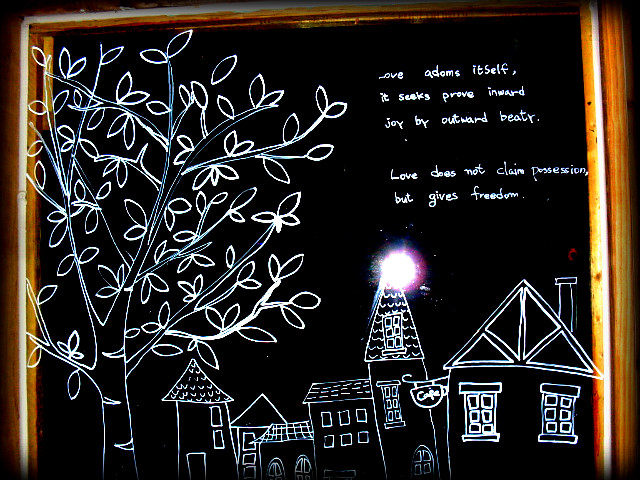 Love adoms itself,
it seeks prove inward
joy by outward beaty.
Love does not claim possession,
but gives freedom.
Cafe